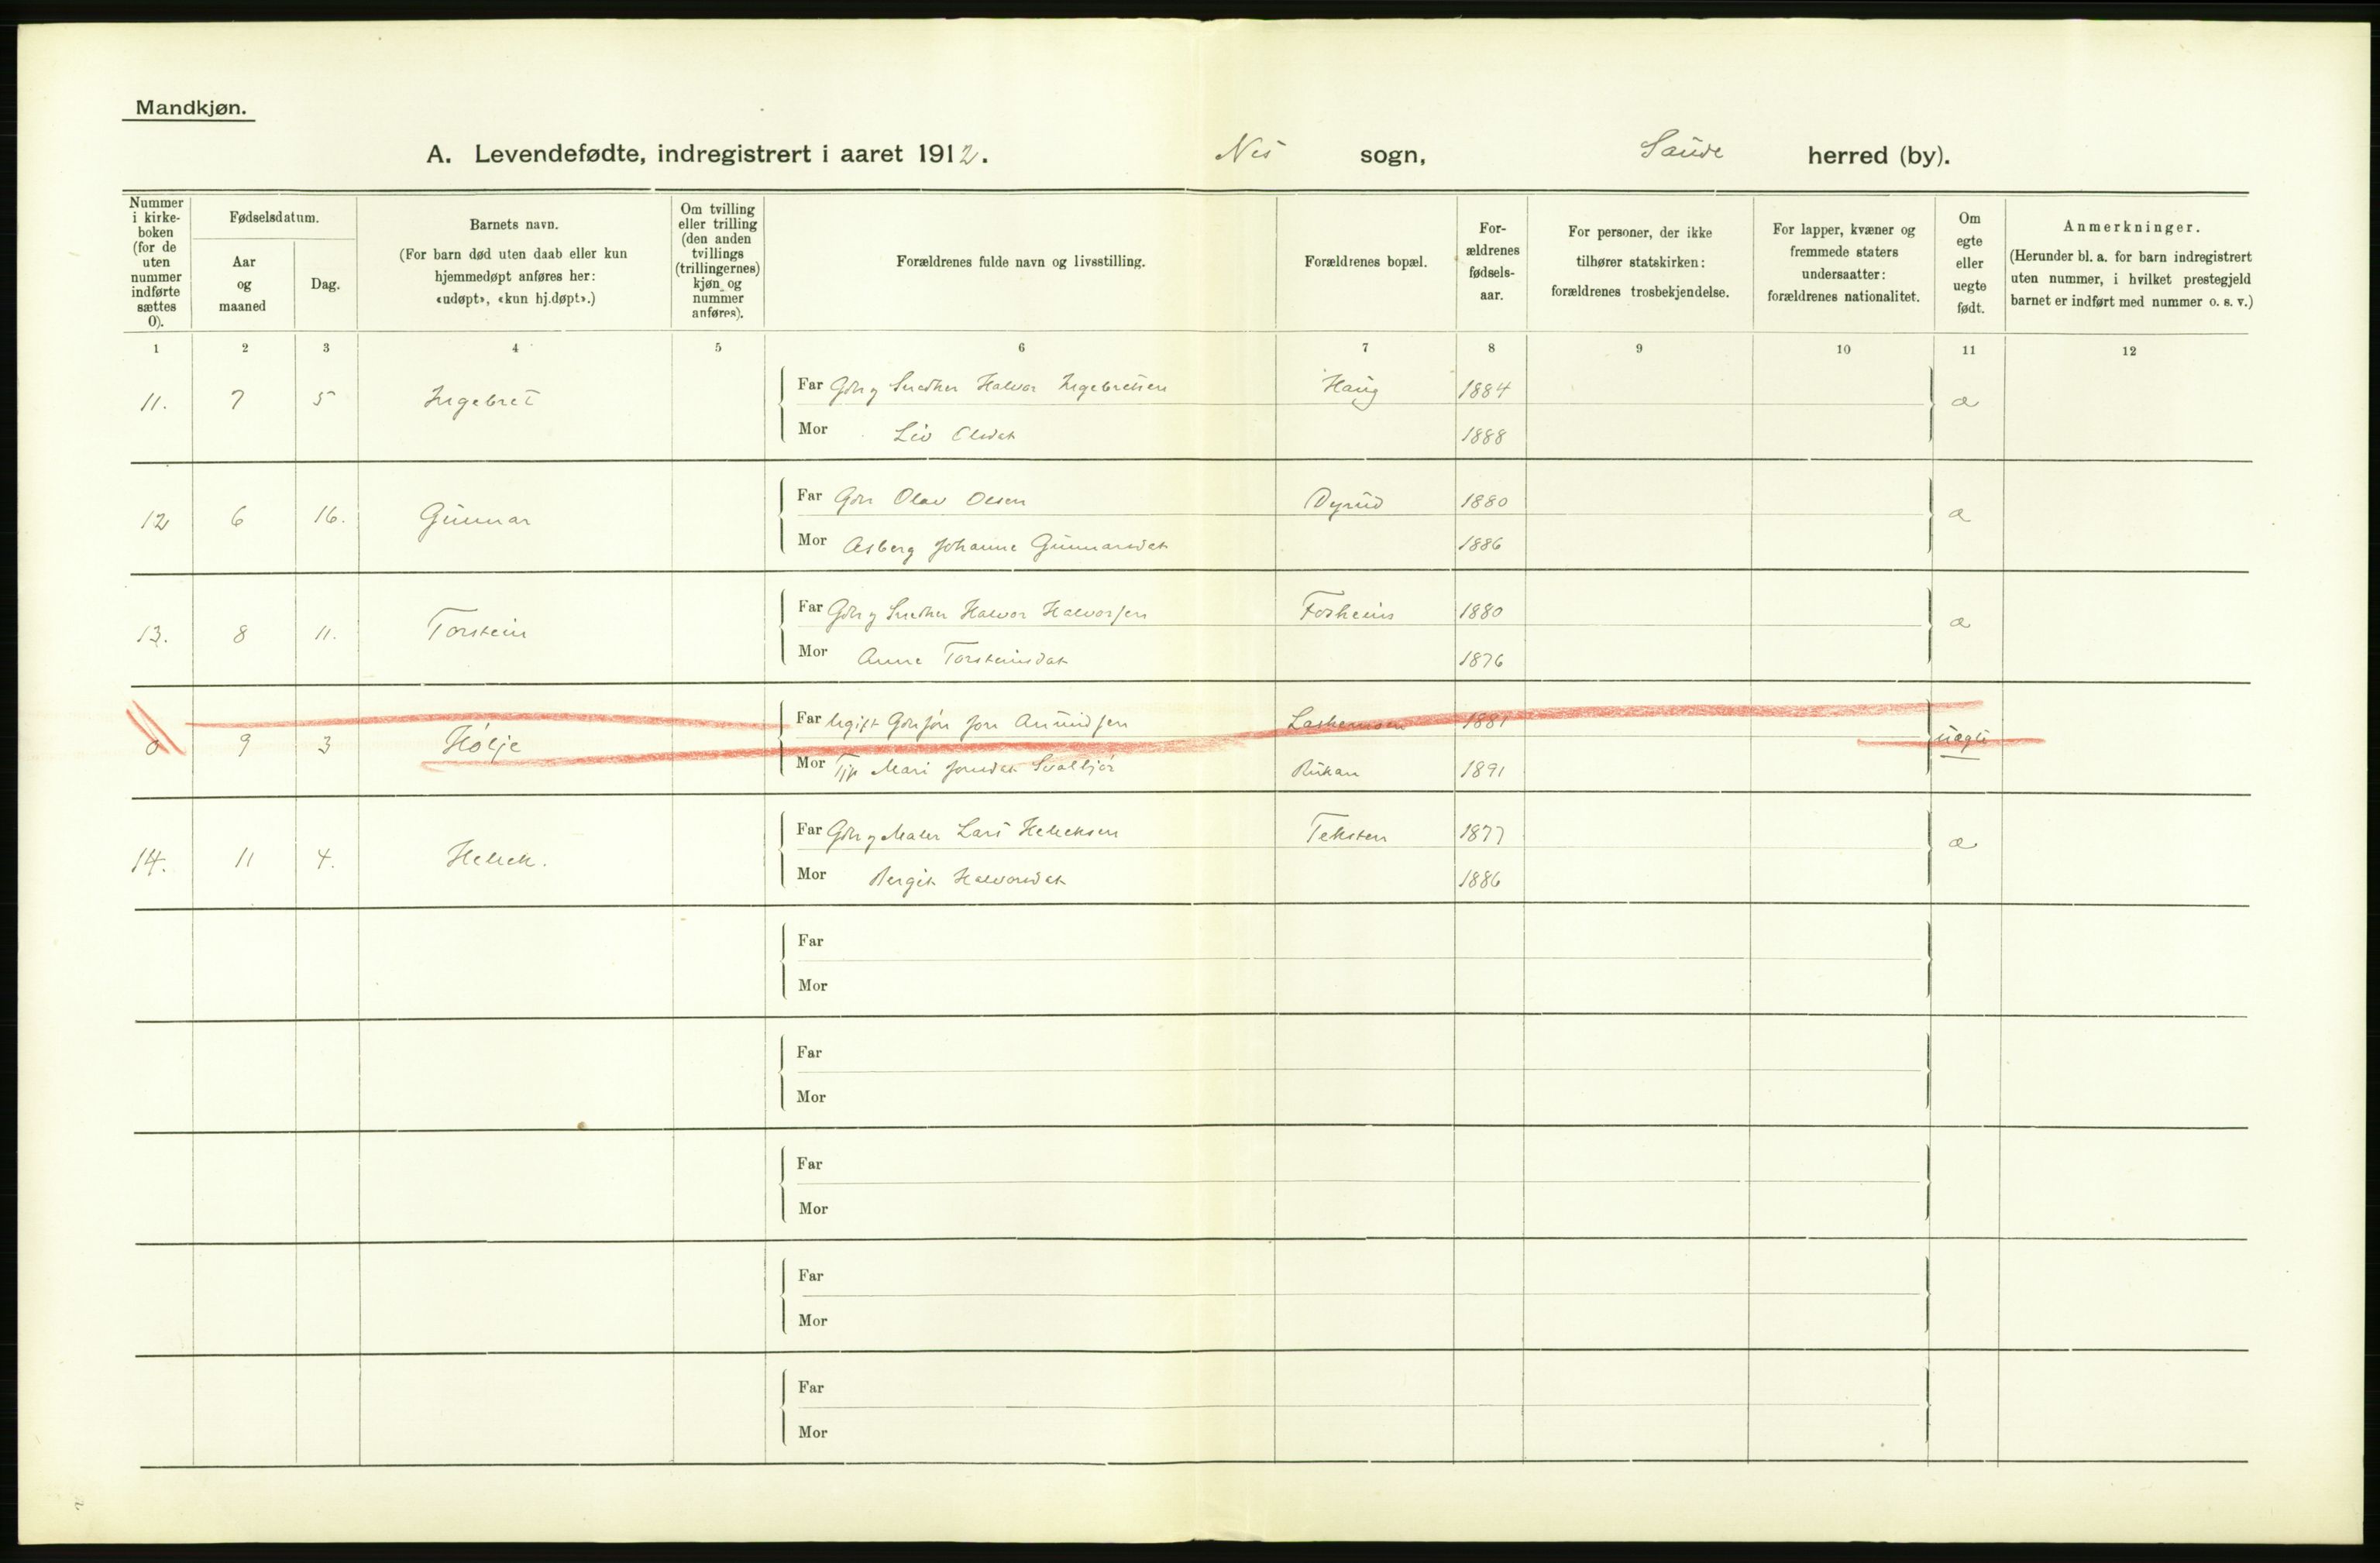 Mandkjøn.
A. Levendefødte, indregistrert i aaret 1912. Nes sogn, Saude herred (by).
Nummer i kirke- boken (for de uten nummer indførte sættes 0).
Fødselsdatum.
Aar og maaned
Dag.
Barnets navn.
(For barn død uten daab eller kun hjemmedøpt anføres her: «udøpt», «kun hj.døpt».)
Om tvilling eller trilling (den anden tvillings (trillingernes) kjøn og nummer anføres).
Forældrenes fulde navn og livsstilling.
Forældrenes bopæl.
For- ældrenes fødsels- aar.
For personer, der ikke tilhører statskirken: forældrenes trosbekjendelse.
For lapper, kvæner og fremmede staters undersaatter: forældrenes nationalitet.
Om egte eller uegte født.
Anmerkninger.
(Herunder bl. a. for barn indregistrert uten nummer, i hvilket prestegjeld barnet er indført med nummer o. s. v.)
1 2 3 4 5 6 7 8 9 10 11 12
11. 7 5 Ingebret Far Gbr og Snedker Halvor Ingebretsen Haug 1884 æ
Mor Liv Olsdat 1888
12 6 16. Gunnar Far Gbr Olav Olsen Dyrud 1880 æ
Mor Asberg Johanne Gunnarsdat 1886
13. 8 11. Torstein Far Gbr og Snedker Halvor Halvorsen Forheim 1880 æ
Mor Anne Torsteinsdat 1876
0 9 3 Hølje Far Ugift Jon Amundsen 1881 uægte
Mor Mari Jonsdat Rukan 1891
14. 11 4. Helleik. Far Gbr og Maler Lars Helleksen Teksten 1877 æ
Mor Bergit Halvorsdat 1886
Far
Mor
Far
Mor
Far
Mor
Far
Mor
Far
Mor